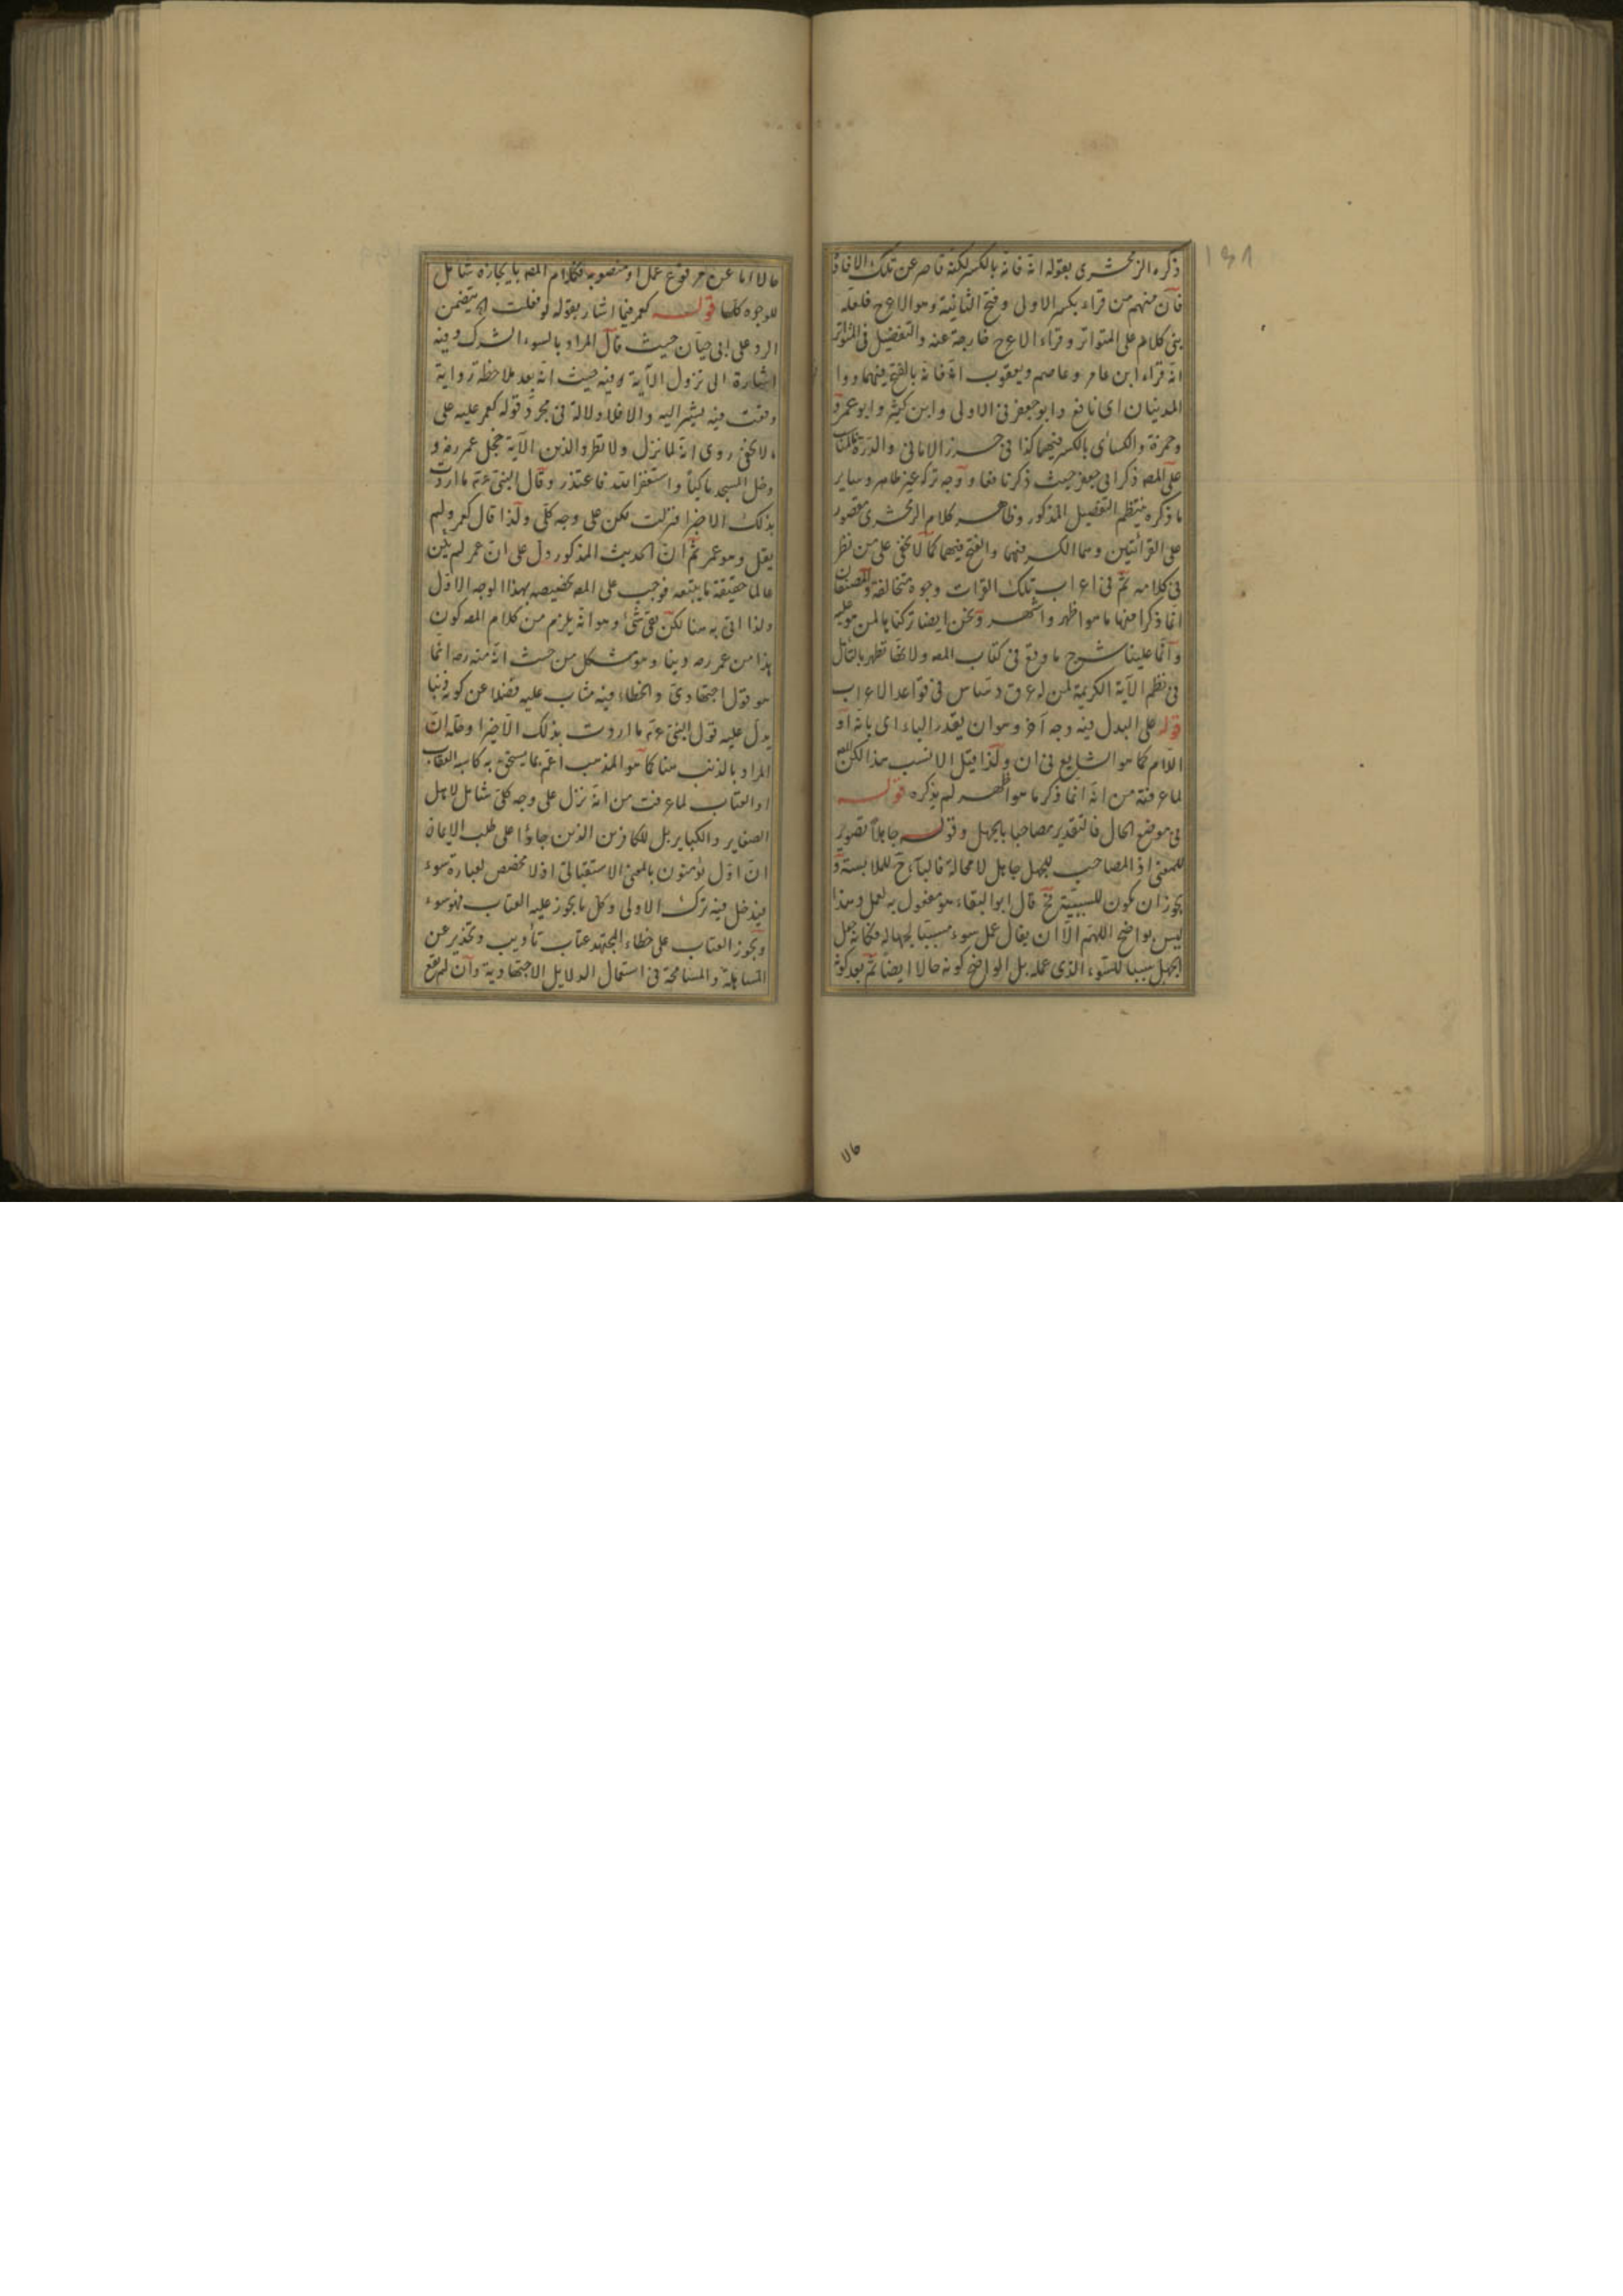 ١٩٨
ذكره الزمخشرى بقوله انه فانه بالكسر لكنه قاصر عن تلك الافادة
فان منهم من قراء بكسر الاولى وفتح الثانية وهو الاعرج فلعله
بنى كلام على المتواتر وقراءة الاعرج خارجة عنه والتفصيل فى المتواتر
انه قراء ابن عامر وعاصم ويعقوب انه فانه بالفتح فيهما ووا
المدنيان اى نافع وابو جعفر فى الاولى وابن كثير وابو عمرو
وحمزة والكسائى بالكسر فيهما كذا فى حرز الامانى والدرة
على المص ذكر ابى جعفر حيث ذكر نافعا ووجه تركه غير ظاهر وساير
ما ذكره ينتظم التفصيل المذكور وظاهر كلام الزمخشرى مقصور
على القرائتين وهما الكسر فيهما والفتح فيهما كما لا يخفى على من نظر
فى كلامه ثم فى اعراب تلك القراات وجوه متخالفة والمصنفان
انما ذكرا منها ما هو اظهر واشهر ونحن ايضا تركناها لمن هو عليه
وانما علينا شرح ما وقع فى كتاب المص ولانها تظهر بالتأمل
فى نظم الآية الكريمة لمن له عرق دساس فى قواعد الاعراب
قوله على البدل فيه وجه آخر وهو ان يقدر الباء اى بانه او
اللام كما هو الشايع فى ان ولذا قيل الانسب هذا لكن المص
لما عرفته من انه انما ذكر ما هو اظهر لم يذكره قوله
فى موضع الحال فالتقدير مصاحبا بالجهل وقوله جاهلا تصوير
للمعنى اذ المصاحب للجهل جاهل لا محالة فالباء ح للملابسة و
يجوز ان يكون للسببية فح قال ابو البقاء هو مفعول به لعمل وهذا
ليس بواضح اللهم الا ان يقال عمل سوء مسببا لجهالة فكانه جعل
الجهل سببا للسوء الذى عمله بل الواضح كونه حالا ايضا ثم بعد كونه
حالا
حالا اما عن مرفوع عمل او منصوبه فكلام المص بايجازه شامل
للوجوه كلها قوله كعمر فيما اشار بقوله لو فعلت الخ يتضمن
الرد على ابى حيان حيث قال المراد بالسوء الشرك وفيه
اشارة الى نزول الآية وفيه حيث انه بعد ملاحظة رواية
وقعت فيه يشير اليه والا فلا دلالة فى مجرد قوله كعمر عليه على
ما لا يخفى روى انه لما نزل ولا تطرد الذين الآية خجل عمر رض و
دخل المسجد باكيا واستغفر الله فاعتذر وقال للنبى عم ما اردت
بذلك الا خيرا فنزلت لكن على وجه كلى ولذا قال كعمر ولم
يقل وهو عمر ثم ان الحديث المذكور دل على ان عمر لم يكن
عالما حقيقة ما يتبعه فوجب على المص تخصيصه بهذا الوجه الاول
ولذا اتى به هنا لكن بقى شئ وهو انه يلزم من كلام المص كون
هذا من عمر رض ذنبا وهو مشكل من حيث انه منه رض انما
هو قول اجتهادى والخطاء فيه مثاب عليه فضلا عن كونه ذنبا
يدل عليه قول النبى عم ما اردت بذلك الا خيرا وحله ان
المراد بالذنب هنا كما هو المذهب اعم مما يستحق به كاسبه العقاب
او العتاب لما عرفت من انه نزل على وجه كلى شامل لاهل
الصغاير والكباير بل للكافرين الذين جاؤا على طلب الايمان
ان اول يؤمنون بالمعنى الاستقبالى اذ لا مخصص لعبارة سوء
فيدخل فيه ترك الاولى وكل ما يجوز عليه العتاب فهو سوء
ويجوز العتاب على خطاء المجتهد عتاب تأديب وتحذير عن
المساهلة والمسامحة فى استعمال الدلايل الاجتهادية وان لم يقع